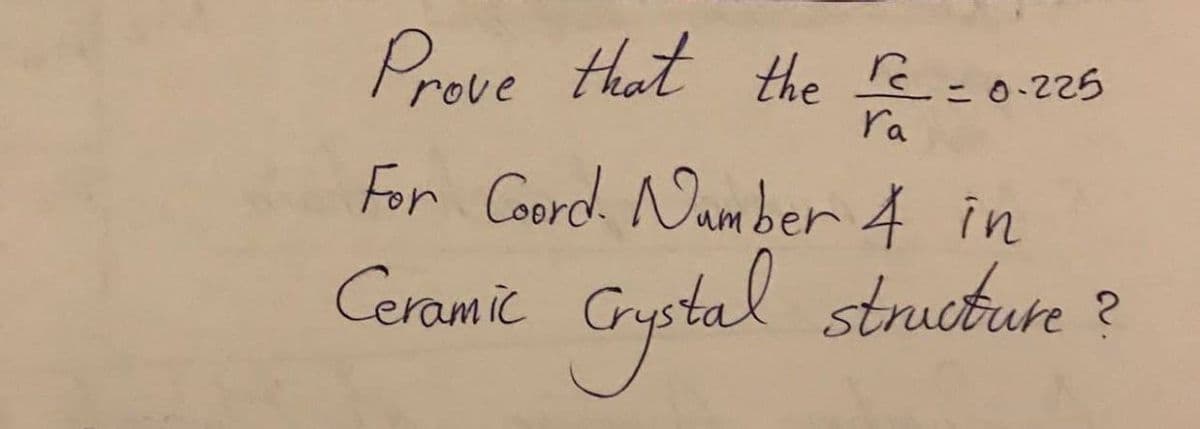 Prove that the rc/ra = 0.225
For Coord. Number 4 in
Ceramic Crystal structure ?